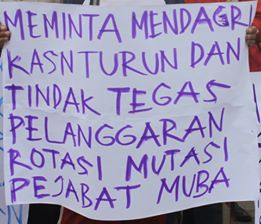 MEMINTA MENDAGRI
KASN TURUN DAN
TINDAK TEGAS
PELANGGARAN
ROTASI MUTASI
PEJABAT MUBA